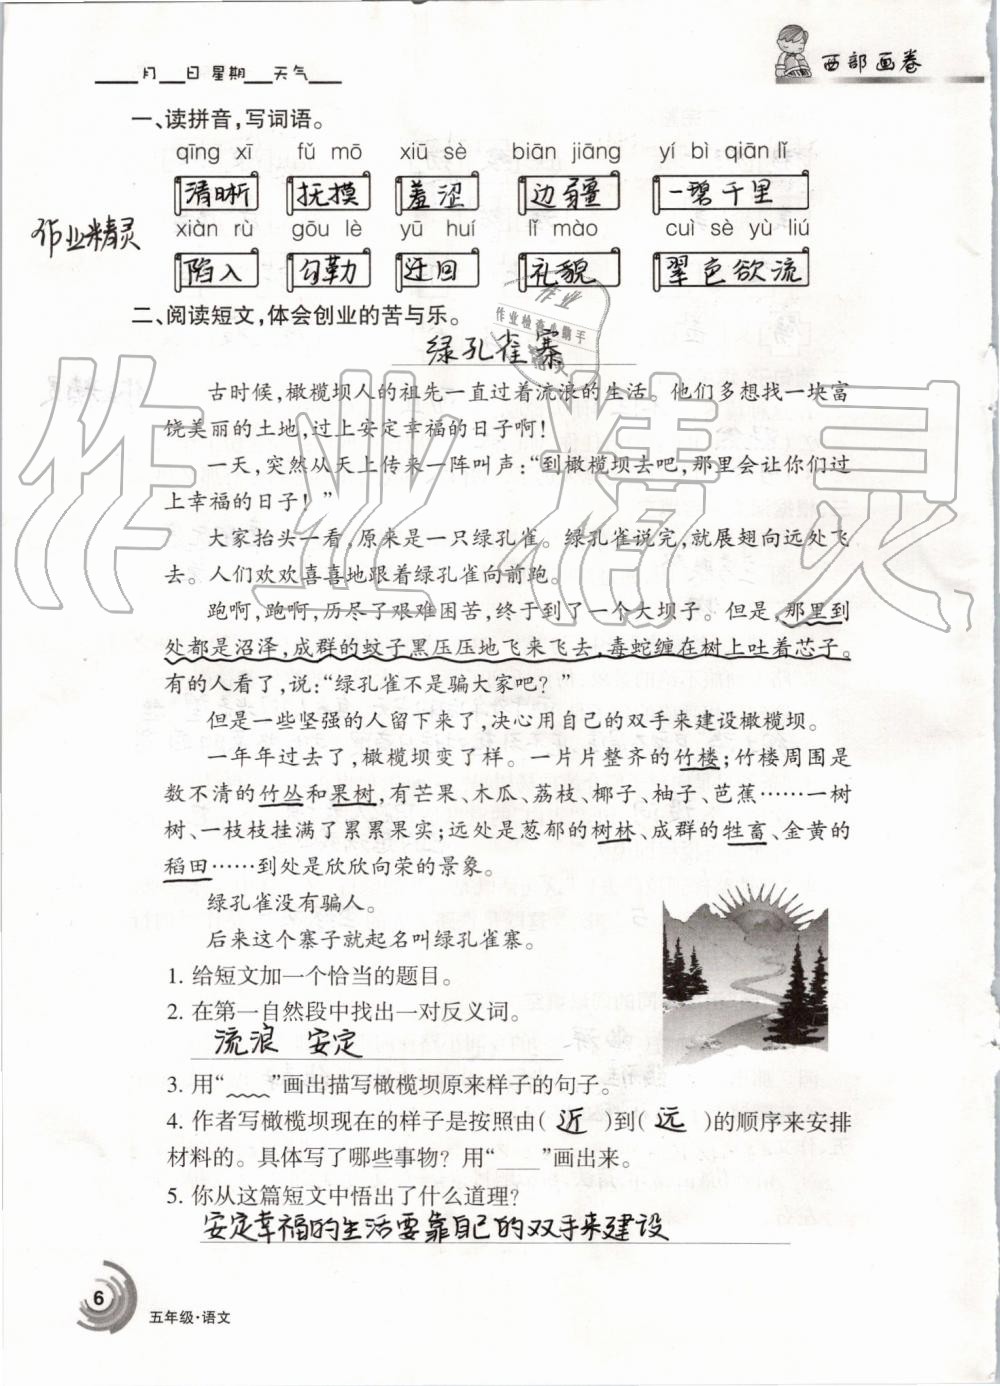 西部画卷
月 日 星期 天气
一、读拼音,写词语。
qīng xī fǔ mō xiū sè biān jiāng yí bì qiān lǐ
清晰 抚摸 羞涩 边疆 一碧千里
作业精灵
xiàn rù gōu lè yū huí lǐ mào cuì sè yù liú
陷入 勾勒 迂回 礼貌 翠色欲流
二、阅读短文,体会创业的苦与乐。
绿孔雀寨
古时候,橄榄坝人的祖先一直过着流浪的生活。他们多想找一块富
饶美丽的土地,过上安定幸福的日子啊!
一天,突然从天上传来一阵叫声:“到橄榄坝去吧,那里会让你们过
上幸福的日子!”
大家抬头一看,原来是一只绿孔雀。绿孔雀说完,就展翅向远处飞
去。人们欢欢喜喜地跟着绿孔雀向前跑。
跑啊,跑啊,历尽了艰难困苦,终于到了一个大坝子。但是,那里到
处都是沼泽,成群的蚊子黑压压地飞来飞去,毒蛇缠在树上吐着芯子。
有的人看了,说:“绿孔雀不是骗大家吧?”
但是一些坚强的人留下来了,决心用自己的双手来建设橄榄坝。
一年年过去了,橄榄坝变了样。一片片整齐的竹楼;竹楼周围是
数不清的竹丛和果树,有芒果、木瓜、荔枝、椰子、柚子、芭蕉……一树
树、一枝枝挂满了累累果实;远处是葱郁的树林、成群的牲畜、金黄的
稻田……到处是欣欣向荣的景象。
绿孔雀没有骗人。
后来这个寨子就起名叫绿孔雀寨。
1. 给短文加一个恰当的题目。
2. 在第一自然段中找出一对反义词。
流浪 安定
3. 用“﹏﹏”画出描写橄榄坝原来样子的句子。
4. 作者写橄榄坝现在的样子是按照由( 近 )到( 远 )的顺序来安排
材料的。具体写了哪些事物? 用“____”画出来。
5. 你从这篇短文中悟出了什么道理?
安定幸福的生活要靠自己的双手来建设
6
五年级·语文
作业精灵
作业
作业检查小帮手